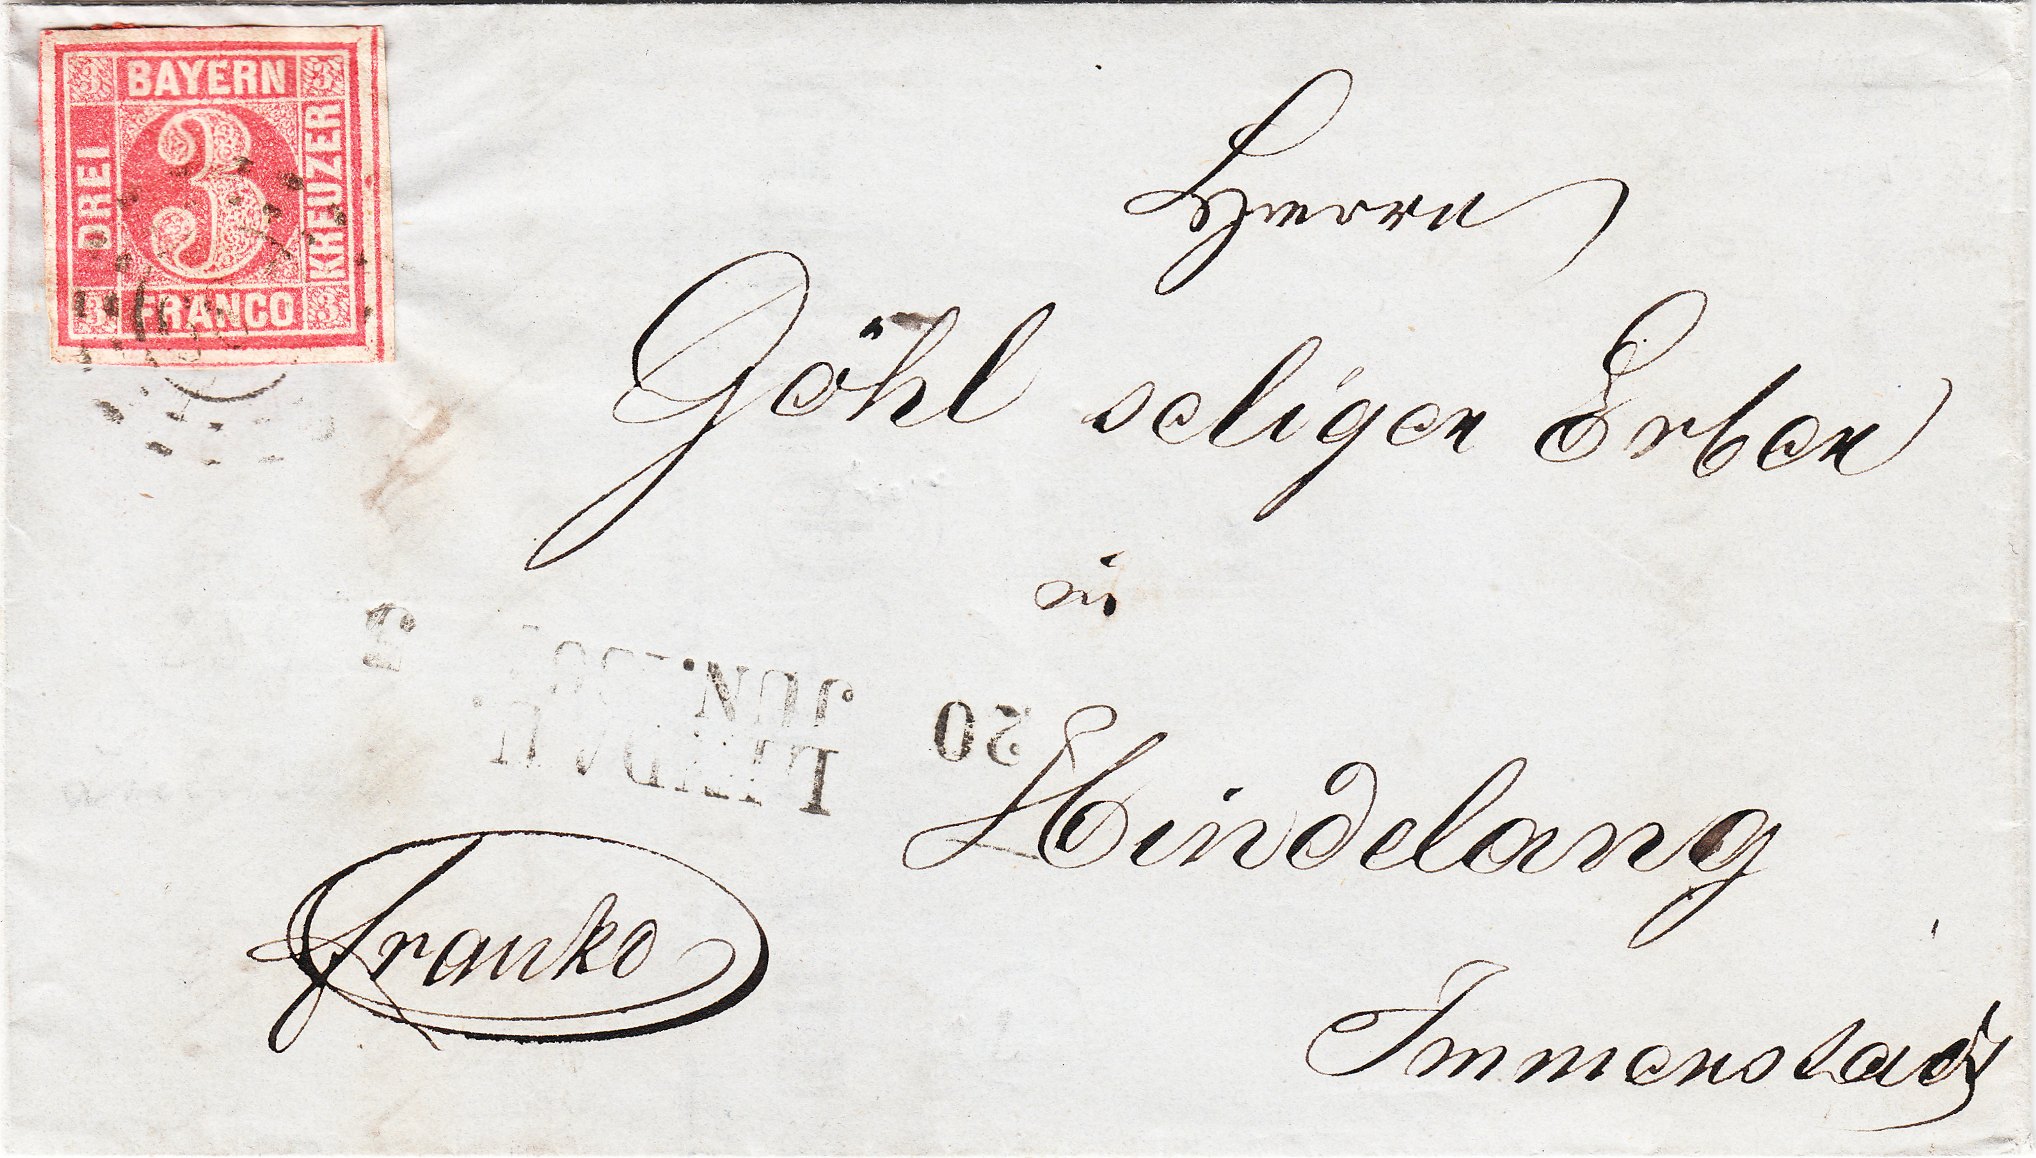 3 BAYERN 3
DREI
3
KREUZER
3 FRANCO 3
Herrn
Göhl seliger Erben
in
Hindelang
Immenstadt
Franko
LINDAU.
20 JUN.